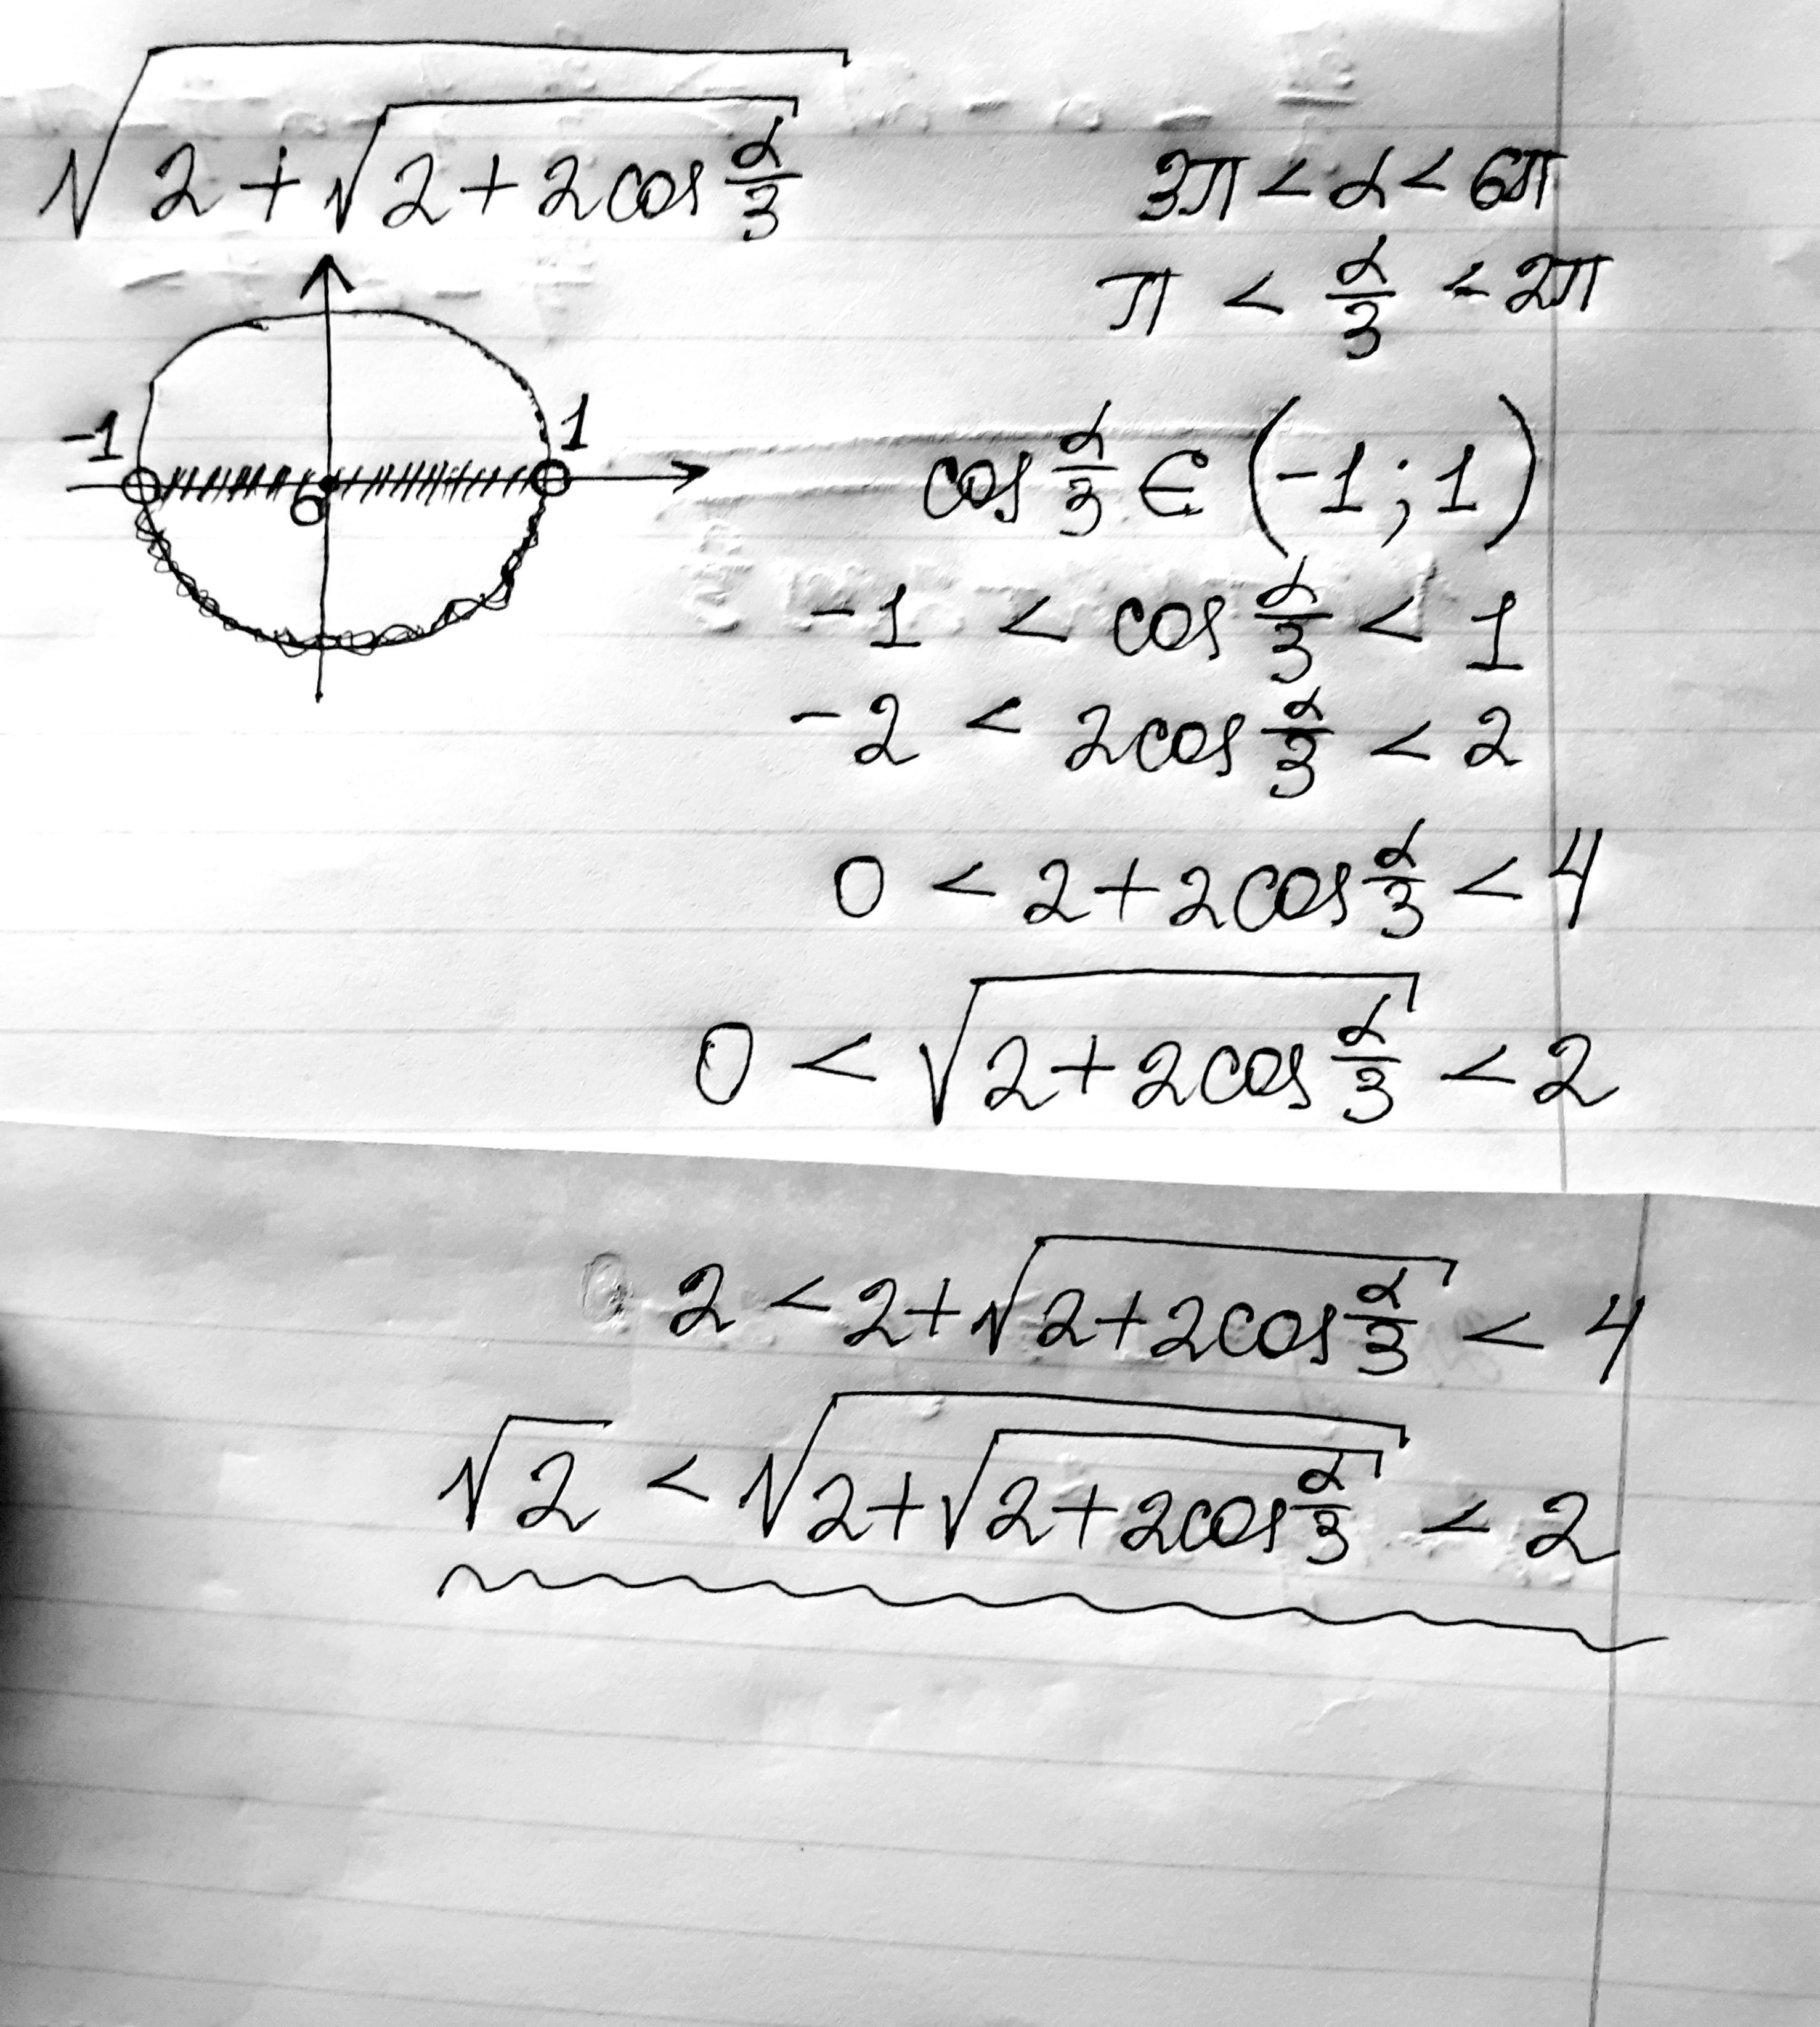 √(2 + √(2 + 2cos α/3))
3π < α < 6π
π < α/3 < 2π
-1 0 1
cos α/3 ∈ (-1; 1)
-1 < cos α/3 < 1
-2 < 2cos α/3 < 2
0 < 2 + 2cos α/3 < 4
0 < √(2 + 2cos α/3) < 2
2 < 2 + √(2 + 2cos α/3) < 4
√2 < √(2 + √(2 + 2cos α/3)) < 2